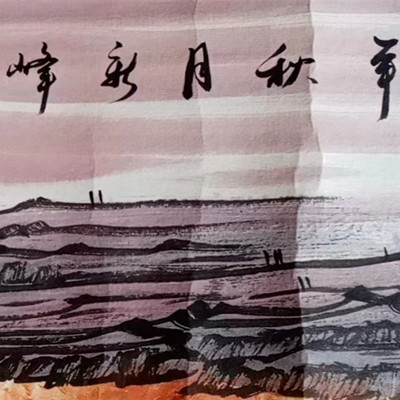 年秋月新峰